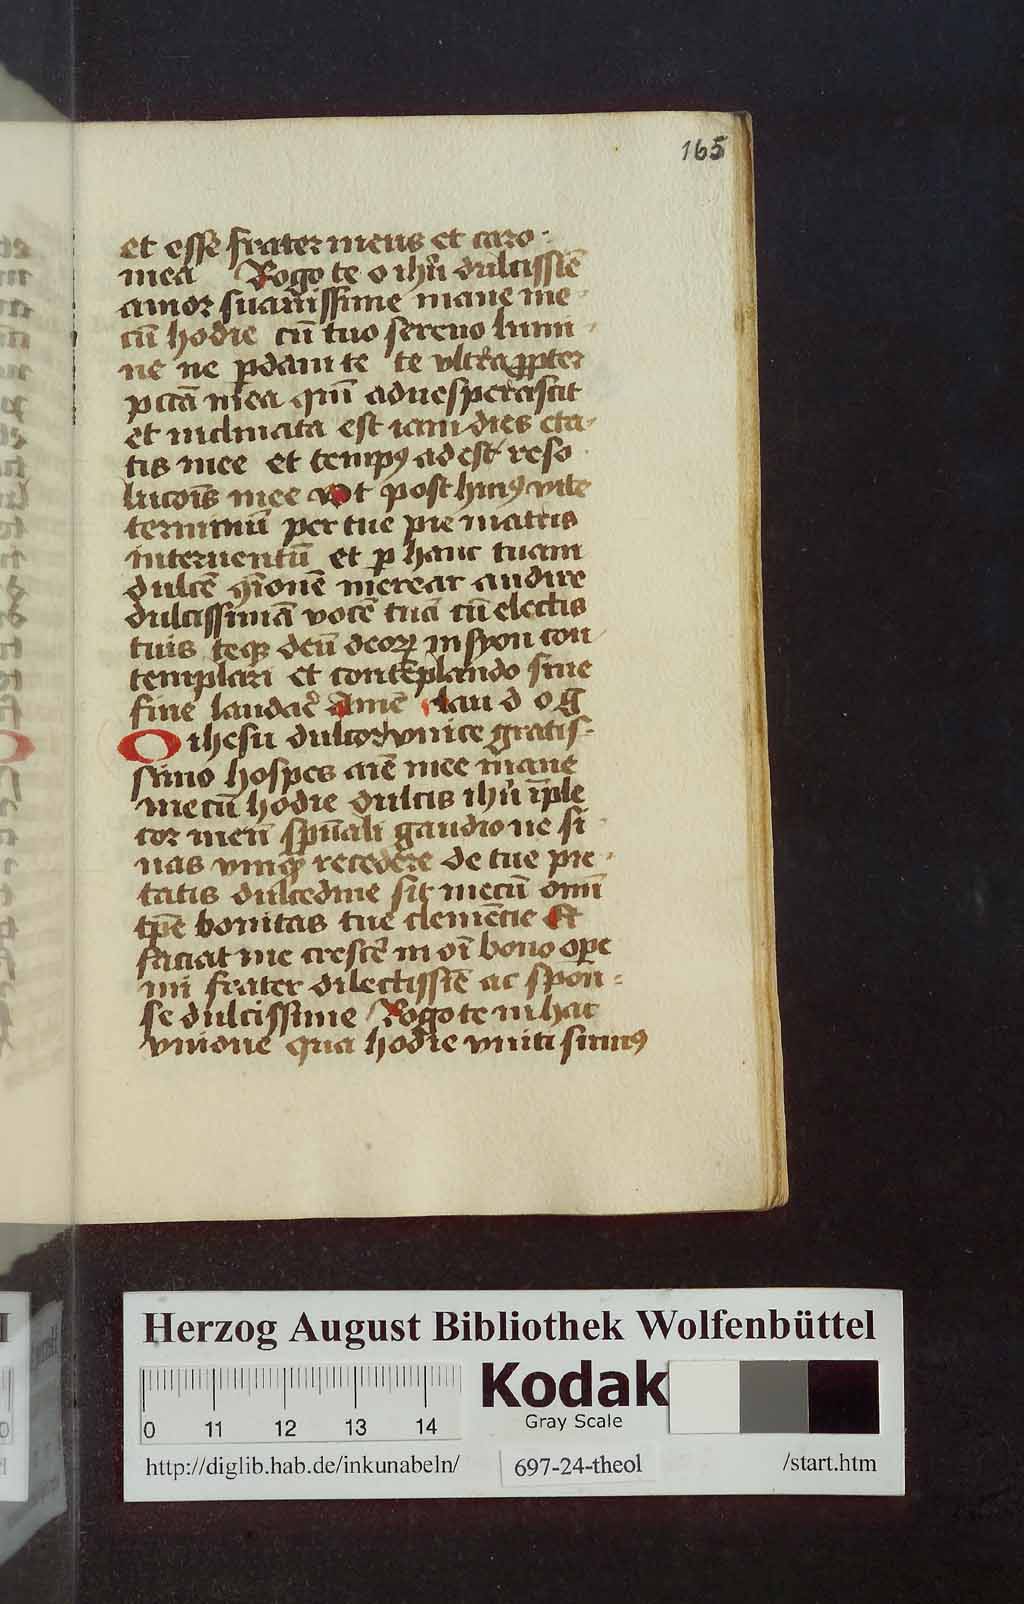 165
et esse frater meus et caro
mea Rogo te o ihu dulcissie
amor suauissime mane me
cu hodie cu tuo sereno lumi
ne ne pdam te te vltra ppter
pcta mea qm aduesperascit
et inclinata est iam dies eta
tis mee et tempꝯ adest reso
lucois mee vt post huiꝯ vite
terminu per tue pie matris
interuentu et p hanc tuam
dulce ionē merear audire
dulcissima voce tua cu electis
tuis teqꝫ deu deoꝝ in syon con
templari et conteplando sine
fine laudare Ame lau d o g
O ihesu dulcor vnice gratis
simo hospes aie mee mane
mecu hodie dulcis ihu iple
cor meu spuali gaudio ne si
nas vnqꝫ recedere de tue pie
tatis dulcedine sit mecu omi
tpe bonitas tue clemecie Et
faciat me cresce in oi bono ope
mi frater dilectissie ac spon
se dulcissime Rogo te in hac
vnione qua hodie vniti sumꝯ
Herzog August Bibliothek Wolfenbüttel
0 11 12 13 14
Kodak
Gray Scale
http://diglib.hab.de/inkunabeln/ 697-24-theol /start.htm